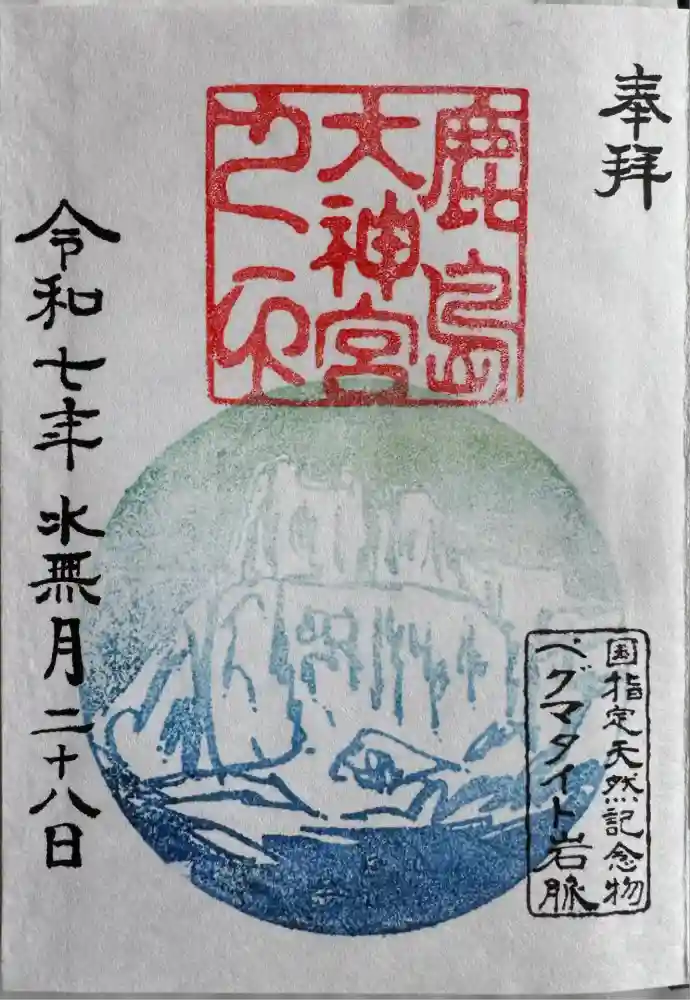 奉拝
鹿島
大神宮
之印
国指定天然記念物
ペグマタイト岩脈
令和七年水無月二十八日